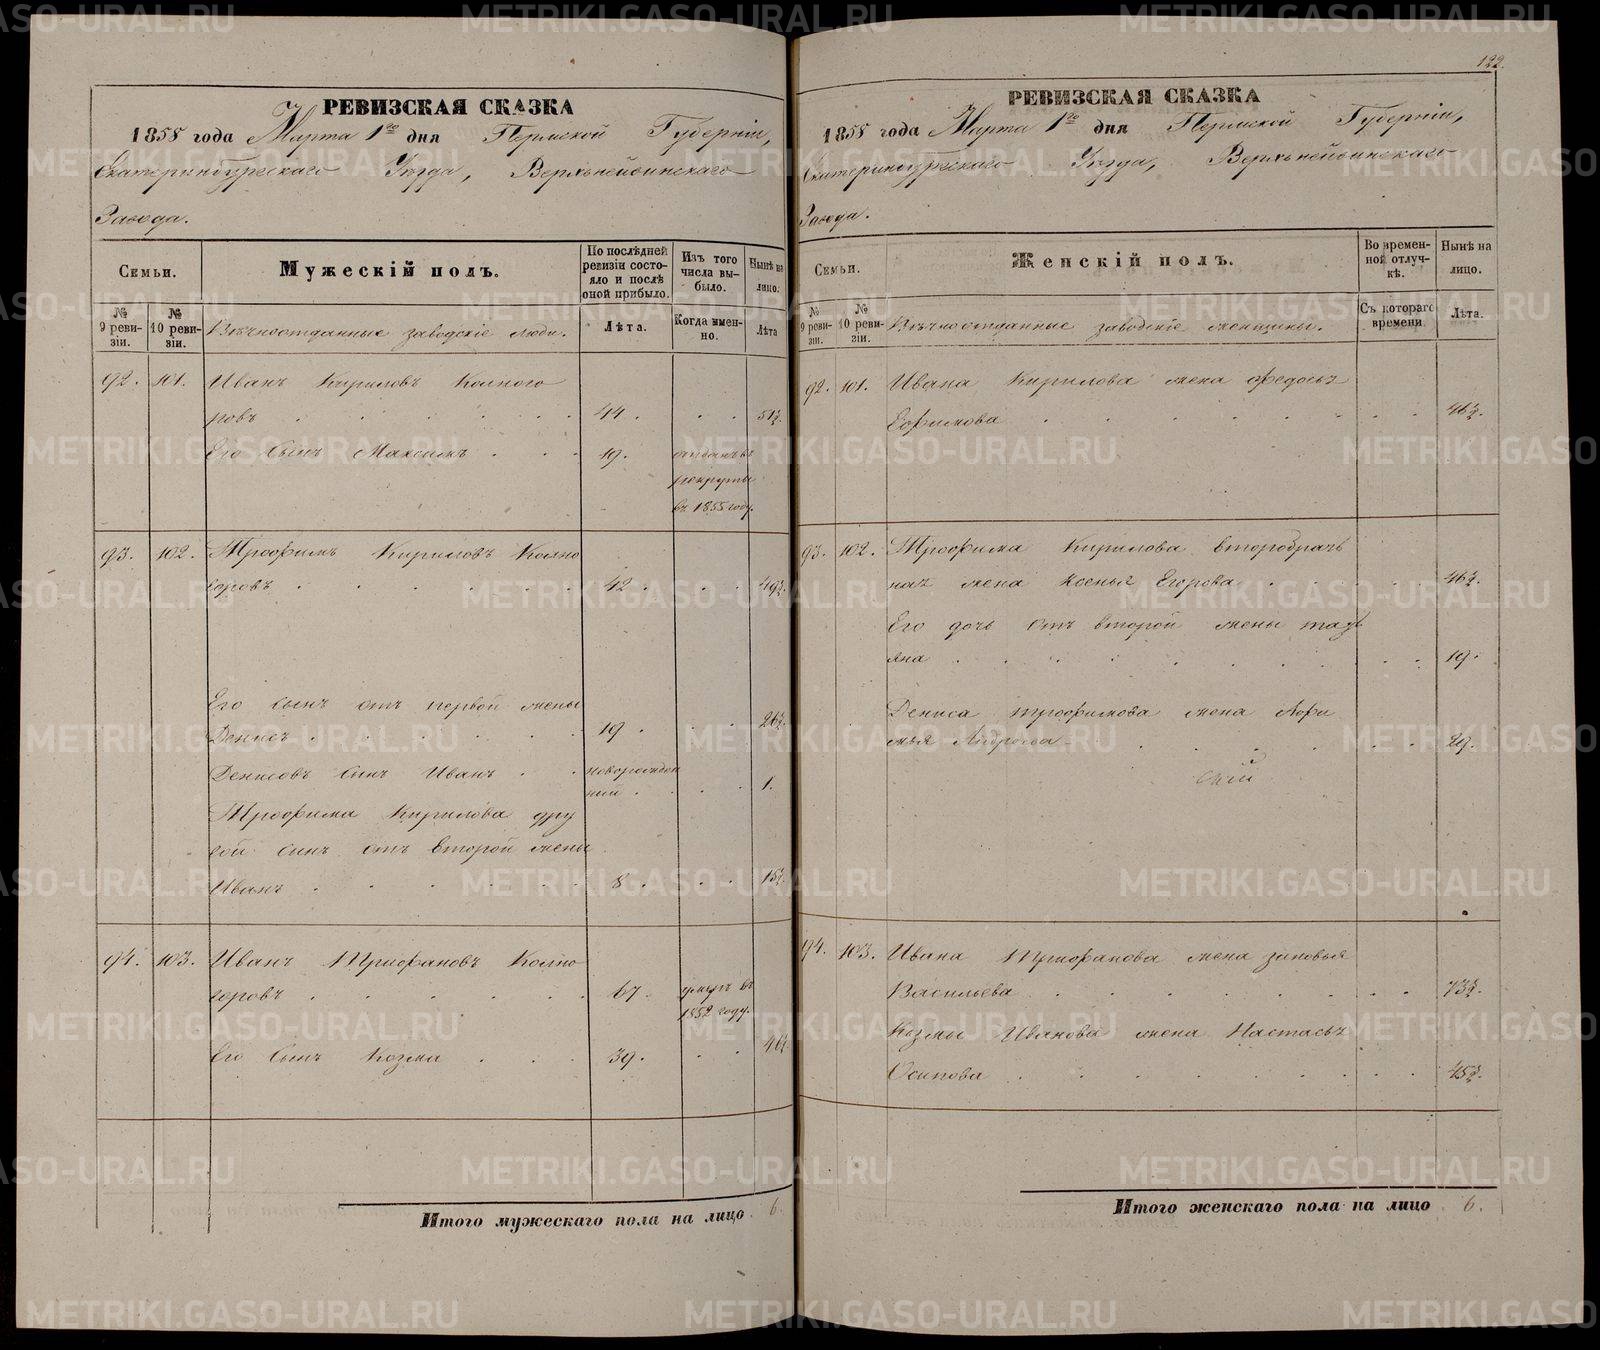 РЕВИЗСКАЯ СКАЗКА
1858 года Марта 1го дня Пермской Губерніи,
Екатеринбургскаго Уѣзда, Верхънейвинскаго
Завода.
Семьи.
Мужескій полъ.
По послѣдней ревизіи состояло и послѣ оной прибыло.
Изъ того числа выбыло.
Нынѣ на лицо.
№ 9 ревизіи.
№ 10 ревизіи.
Вѣчноотданные заводскіе люди.
Лѣта.
Когда именно.
Лѣта
92. 101. Иванъ Кириловъ Колного
ровъ 44. 51½.
Его сынъ Максимъ 19. отданъ въ
рекруты
въ 1855 году.
93. 102. Трофимъ Кириловъ Колно
горовъ 42. 49½.
Его сынъ отъ первой жены
Денисъ 19. 26½.
Денисовъ сынъ Иванъ новорожден
ный 1.
Трофима Кирилова дру
гой сынъ отъ второй жены
Иванъ 8. 15½.
94. 103. Иванъ Трифановъ Колно
горовъ 67. умеръ въ
1852 году.
Его сынъ Козма 39. 46½.
Итого мужескаго пола на лицо 6.
122.
РЕВИЗСКАЯ СКАЗКА
1858 года Марта 1го дня Пермской Губерніи,
Екатеринбургскаго Уѣзда, Верхънейвинскаго
Завода.
Семьи.
Женскій полъ.
Во временной отлучкѣ.
Нынѣ на лицо.
№ 9 ревизіи.
№ 10 ревизіи.
Вѣчноотданные заводскіе женщины.
Съ котораго времени.
Лѣта.
92. 101. Ивана Кирилова жена Федосья
Ефимова 46½.
93. 102. Трофима Кирилова второбрач
ная жена Ксенья Егорова 46½.
Его дочь отъ второй жены Татъ
яна 19.
Дениса Трофимова жена Афи
мья Андреева 29.
94. 103. Ивана Трифанова жена Зиновья
Васильева 73½.
Козмы Иванова жена Настасья
Осипова 45½.
Итого женскаго пола на лицо 6.
METRIKI.GASO-URAL.RU